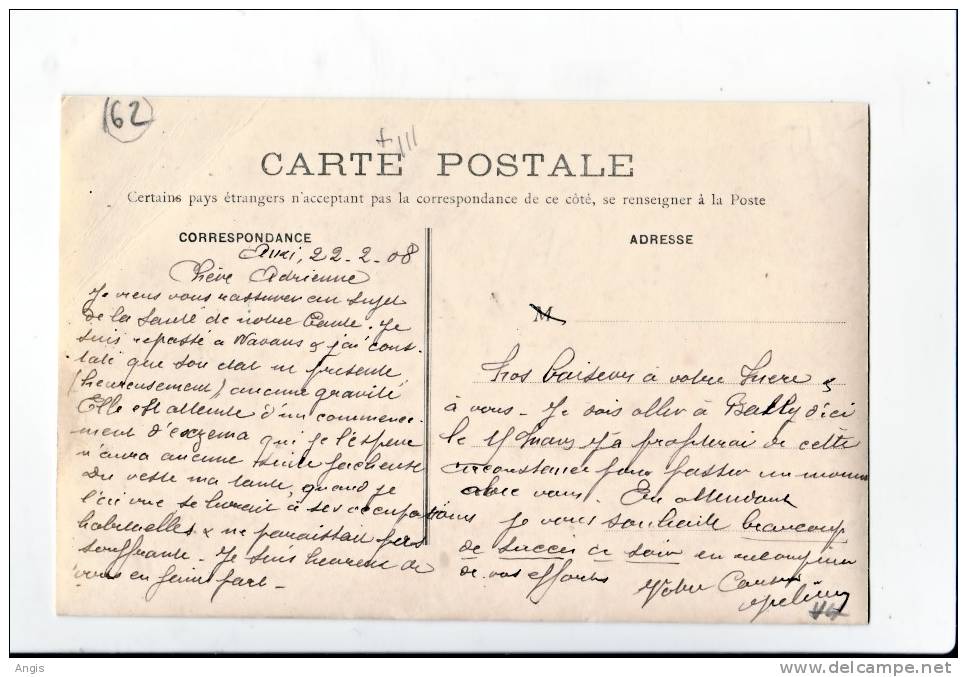 62
CARTE POSTALE
Certains pays étrangers n'acceptant pas la correspondance de ce côté, se renseigner à la Poste
CORRESPONDANCE
22-2-08
Chère Adrienne
Je viens vous rassurer au sujet
de la Santé de notre Tante. Je
suis repassé à Wavans & j'ai cons-
taté que son état ne présente
(heureusement) aucune gravité
Elle est atteinte d'un commence-
ment d'eczema qui je l'espère
n'aura aucune suite facheuse
Du reste ma tante, quand je
l'ai vue se livrait à ses occupations
habituelles & ne paraissait pas
souffrante. Je suis heureux de
vous en faire part-
ADRESSE
M
Nos baisers à votre &
à vous - Je vais aller à d'ici
le profiterai de cette
circonstance pour passer un moment
avec vous. En attendant
je vous souhaite beaucoup
de succès ce soir en
de vos efforts
Votre Cousin
Angis
www.delcampe.net